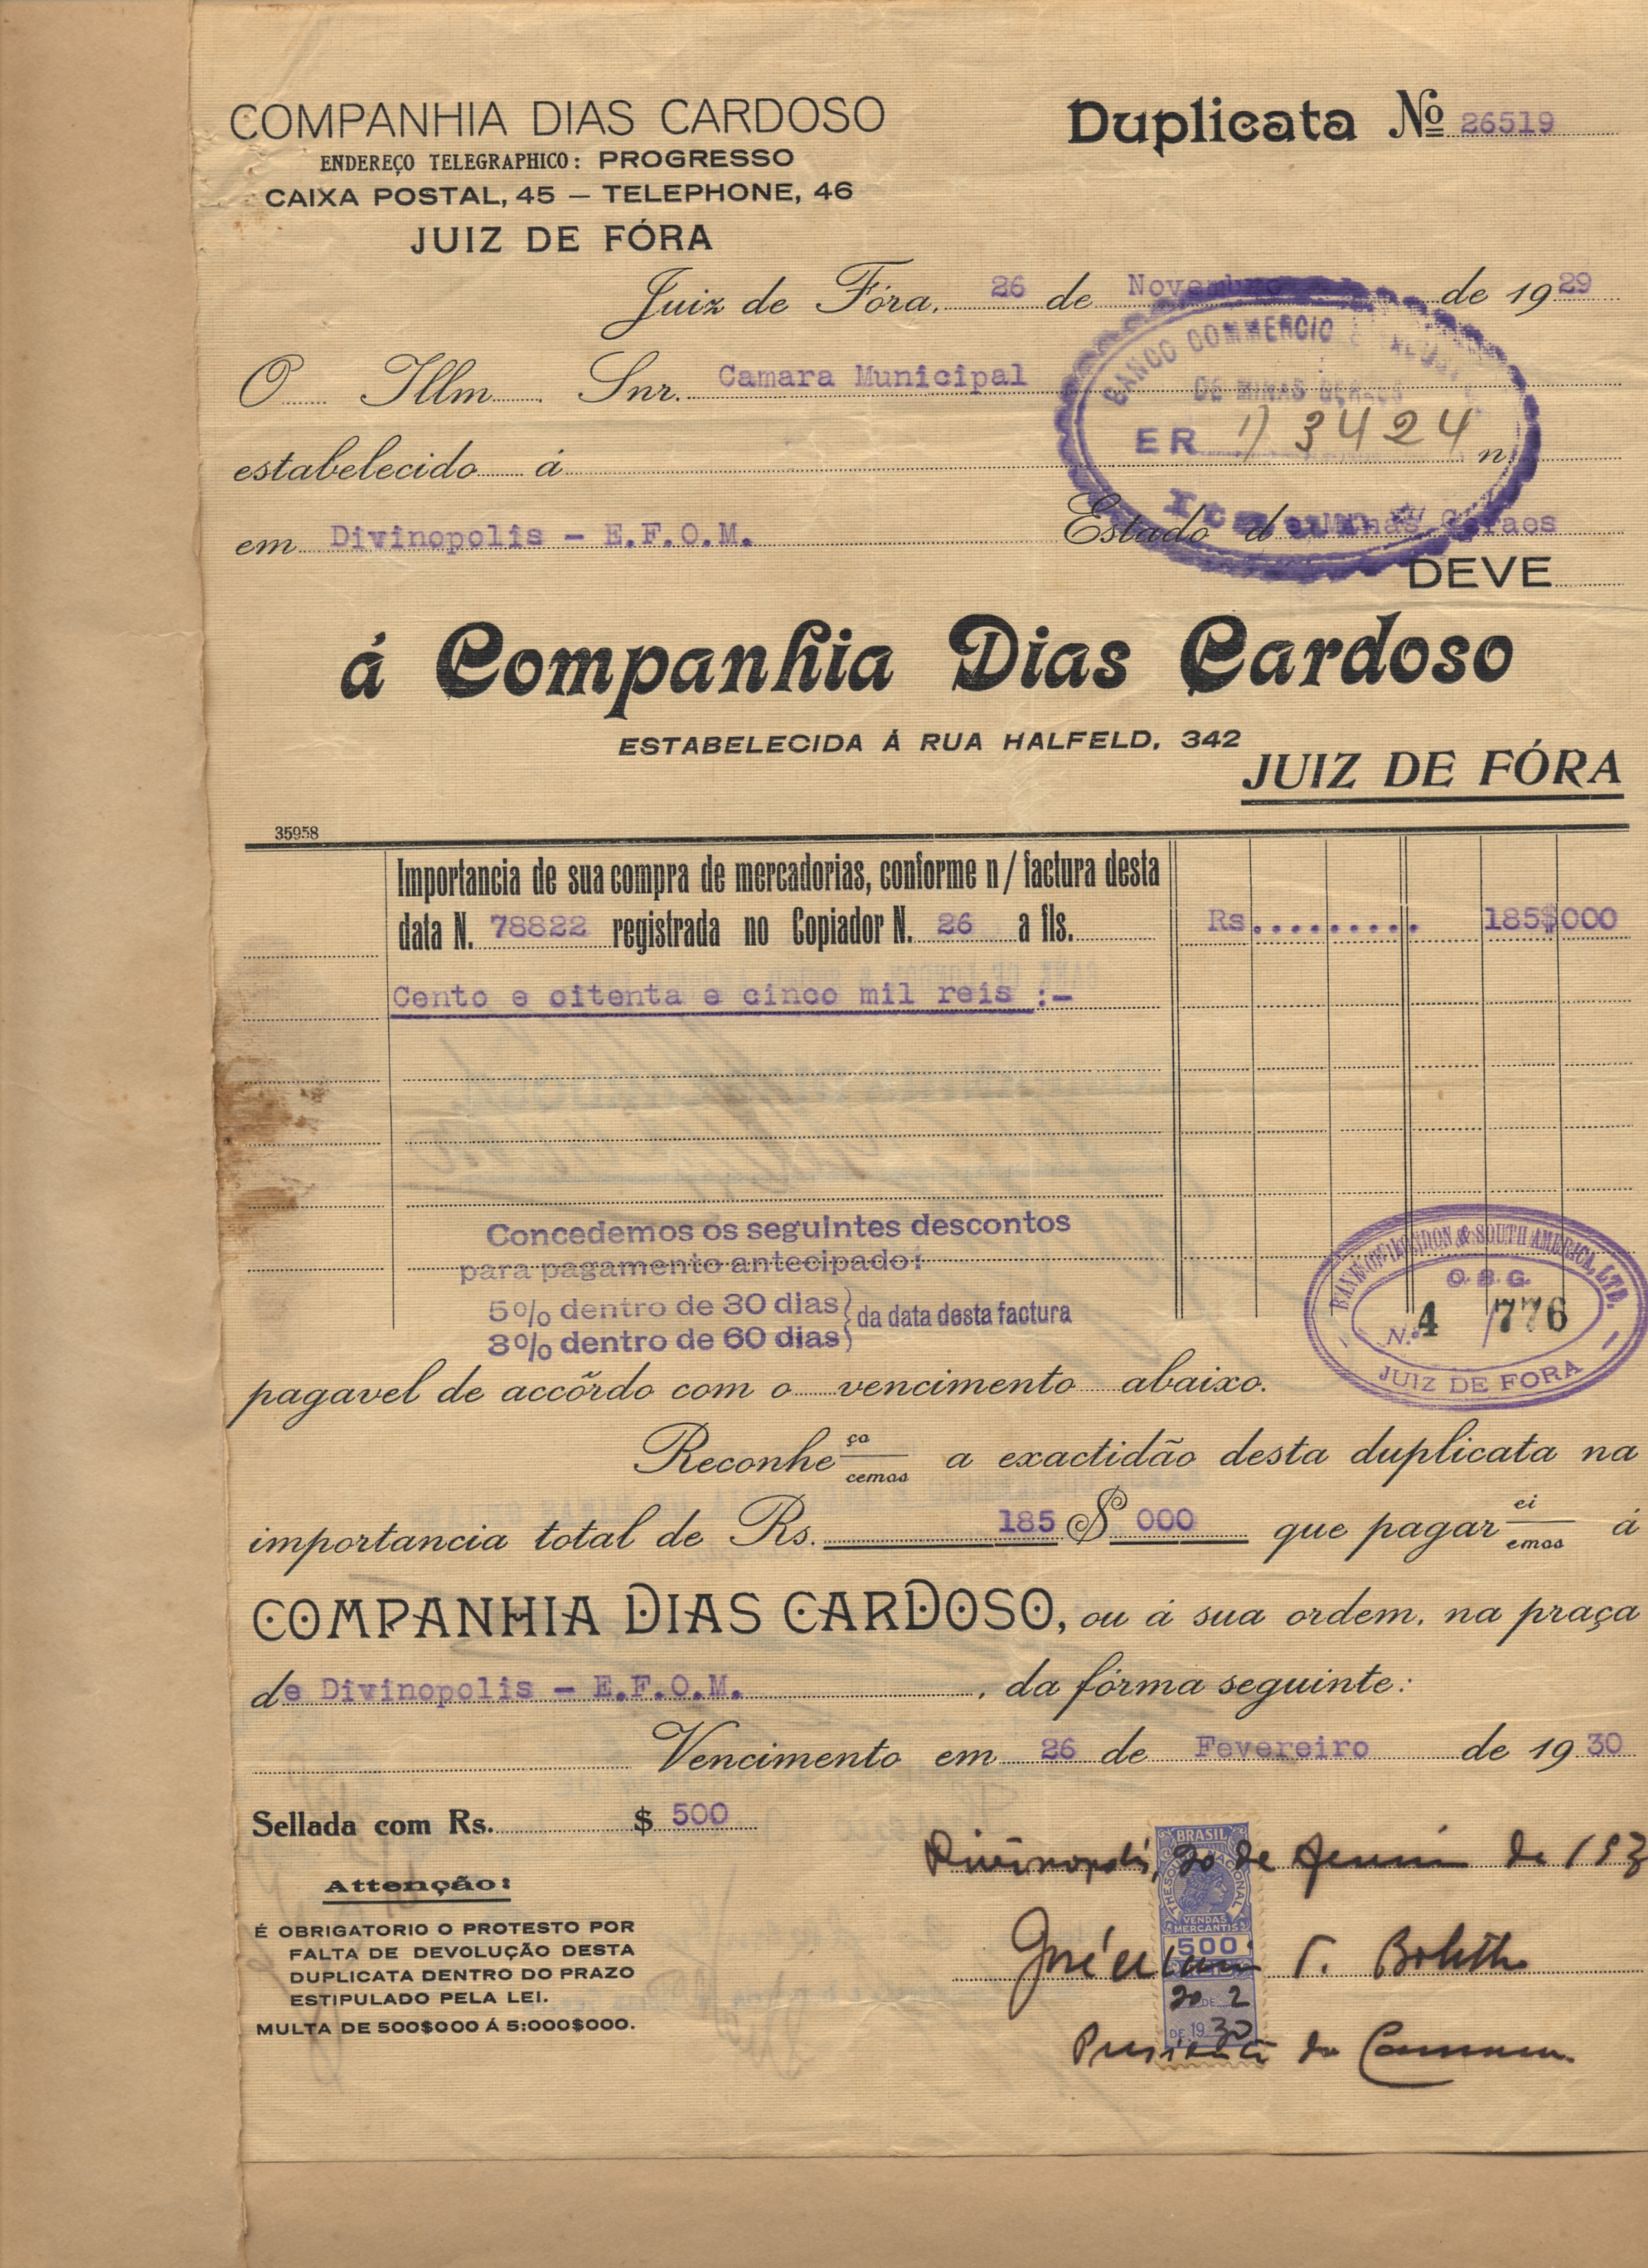 COMPANHIA DIAS CARDOSO
ENDEREÇO TELEGRAPHICO: PROGRESSO
CAIXA POSTAL, 45 — TELEPHONE, 46
JUIZ DE FÓRA
Duplicata Nº 26519
Juiz de Fóra, 26 de Novembro de 1929
O Illm Snr. Camara Municipal
BANCO COMMERCIO E
DE MINAS GERAES
ER 1) 3424
estabelecido á n
em Divinopolis - E.F.O.M. Estado de Minas Geraes
DEVE
á Companhia Dias Cardoso
ESTABELECIDA Á RUA HALFELD, 342
JUIZ DE FÓRA
35958
Importancia de sua compra de mercadorias, conforme n/ factura desta
data N. 78822 registrada no Copiador N. 26 a fls. Rs......... 185$000
Cento e oitenta e cinco mil reis :-
Concedemos os seguintes descontos
para pagamento antecipado:
5% dentro de 30 dias
3% dentro de 60 dias
da data desta factura
BANK OF LONDON & SOUTH AMERICA, LTD.
O. B. G.
N.º 4 /776
JUIZ DE FORA
pagavel de accôrdo com o vencimento abaixo.
Reconhe ça cemos a exactidão desta duplicata na
importancia total de Rs. 185 $ 000 que pagar ei emos á
COMPANHIA DIAS CARDOSO, ou á sua ordem, na praça
de Divinopolis - E.F.O.M. , da fórma seguinte:
Vencimento em 26 de Fevereiro de 1930
Sellada com Rs. $ 500
Attenção:
É OBRIGATORIO O PROTESTO POR
FALTA DE DEVOLUÇÃO DESTA
DUPLICATA DENTRO DO PRAZO
ESTIPULADO PELA LEI.
MULTA DE 500$000 Á 5:000$000.
Divinopolis, 20 de de 193
BRASIL
THESOURO NACIONAL
VENDAS
MERCANTIS
500
José
20 DE 2
DE 1930
Presidente da Camara